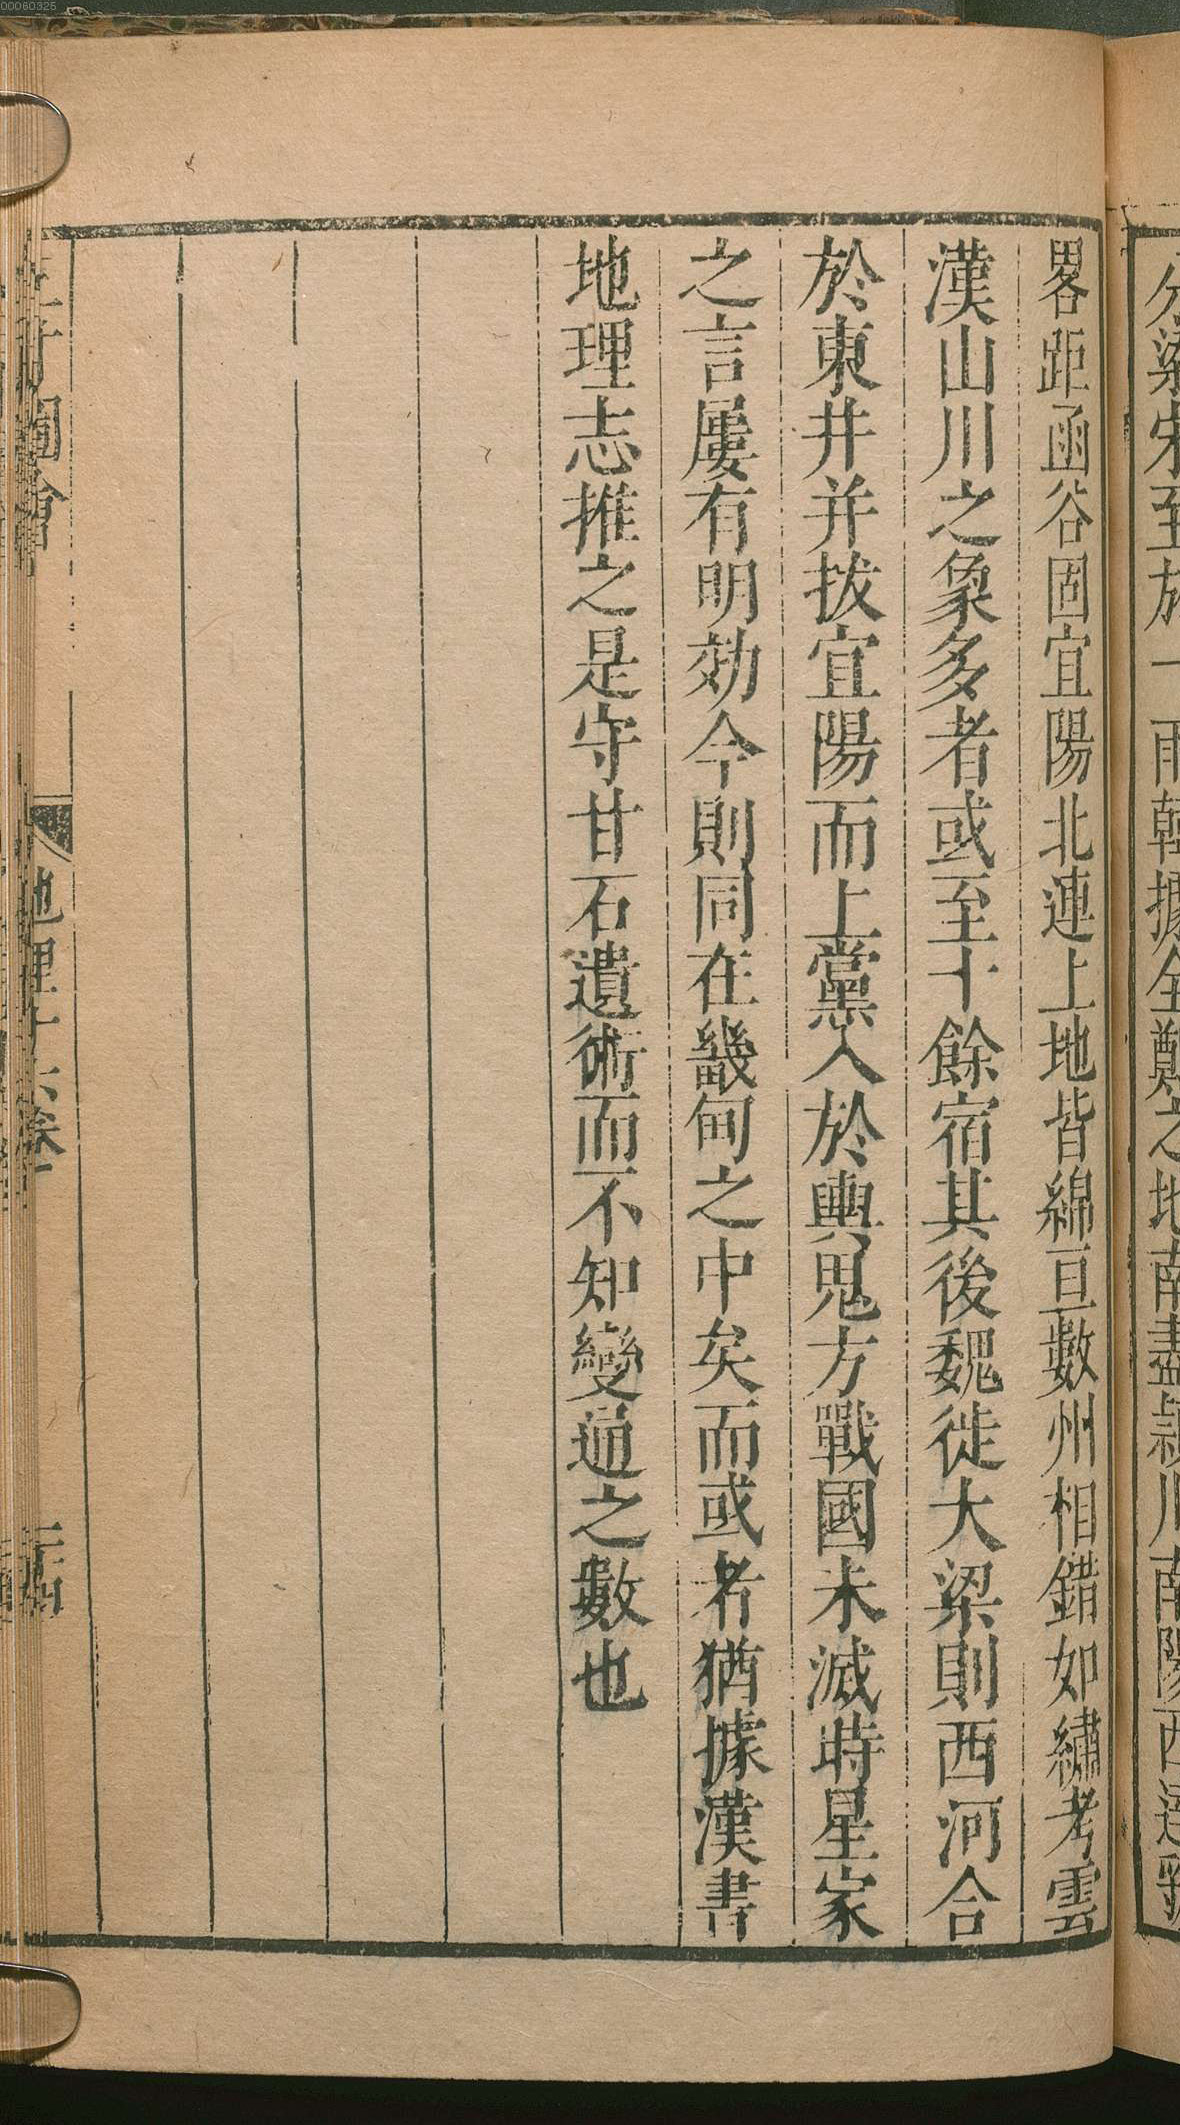 00060325
分梁宋至於一雨韓據全鄭之地南盡潁川南陽西達虢
畧距函谷固宜陽北連上地皆綿亘數州相錯如繡考雲
漢山川之象多者或至十餘宿其後魏徙大梁則西河合
於東井并拔宜陽而上黨入於輿鬼方戰國未滅時星家
之言屢有明効今則同在畿甸之中矣而或者猶據漢書
地理志推之是守甘石遺術而不知變通之數也
圖會
地理十六卷